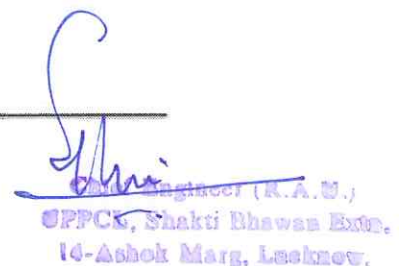 Chief Engineer (R.A.U.)
UPPCL, Shakti Bhawan Extn.
14-Ashok Marg, Lucknow.